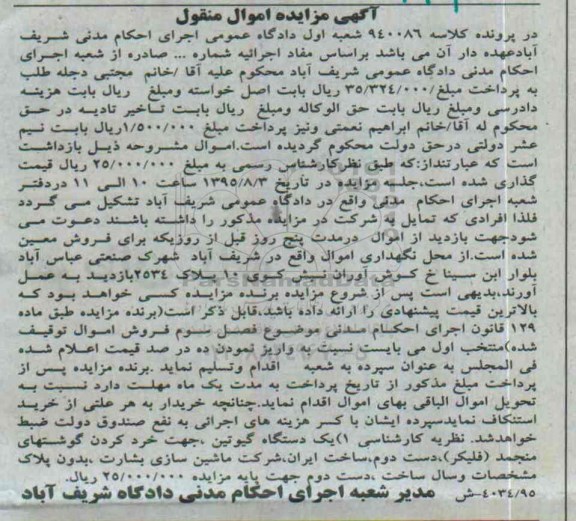 آگهی مزایده اموال منقول
در پرونده کلاسه ۹۴۰۰۸۶ شعبه اول دادگاه عمومی اجرای احکام مدنی شریف
آبادعهده دار آن می باشد براساس مفاد اجرائیه شماره ... صادره از شعبه اجرای
احکام مدنی دادگاه عمومی شریف آباد محکوم علیه آقا /خانم مجتبی دجله طلب
به پرداخت مبلغ/۳۵/۳۲۴/۰۰۰ ریال بابت اصل خواسته ومبلغ ریال بابت هزینه
دادرسی ومبلغ ریال بابت حق الوکاله ومبلغ ریال بابت تاخیر تادیه در حق
محکوم له آقا/خانم ابراهیم نعمتی ونیز پرداخت مبلغ ۱/۵۰۰/۰۰۰ریال بابت نیم
عشر دولتی درحق دولت محکوم گردیده است.اموال مشروحه ذیل بازداشت
است که عبارتنداز:که طبق نظرکارشناس رسمی به مبلغ ۲۵/۰۰۰/۰۰۰ ریال قیمت
گذاری شده است،جلسه مزایده در تاریخ ۱۳۹۵/۸/۳ ساعت ۱۰ الی ۱۱ دردفتر
شعبه اجرای احکام مدنی واقع در دادگاه عمومی شریف آباد تشکیل می گردد
فلذا افرادی که تمایل به شرکت در مزایده مذکور را داشته باشند دعوت می
شودجهت بازدید از اموال درمدت پنج روز قبل از روزیکه برای فروش معین
شده است.از محل نگهداری اموال واقع در شریف آباد شهرک صنعتی عباس آباد
بلوار ابن سینا خ کوش آوران نبش کوی ۱۰ پلاک ۲۵۳۴بازدید به عمل
آورند،بدیهی است پس از شروع مزایده برنده مزایده کسی خواهد بود که
بالاترین قیمت پیشنهادی را ارائه داده باشد،قابل ذکر است(برنده مزایده طبق ماده
۱۲۹ قانون اجرای احکام مدنی موضوع فصل سوم فروش اموال توقیف
شده)منتخب اول می بایست نسبت به واریز نمودن ده در صد قیمت اعلام شده
فی المجلس به عنوان سپرده به شعبه اقدام وتسلیم نماید .برنده مزایده پس از
پرداخت مبلغ مذکور از تاریخ پرداخت به مدت یک ماه مهلت دارد نسبت به
تحویل اموال الباقی بهای اموال اقدام نماید.چنانچه خریدار به هر علتی از خرید
استنکاف نمایدسپرده ایشان با کسر هزینه های اجرائی به نفع صندوق دولت ضبط
خواهدشد. نظریه کارشناسی ۱)یک دستگاه گیوتین ،جهت خرد کردن گوشتهای
منجمد (فلیکر)،دست دوم،ساخت ایران،شرکت ماشین سازی بشارت ،بدون پلاک
مشخصات وسال ساخت ،دست دوم جهت پایه مزایده ۲۵/۰۰۰/۰۰۰ ریال.
۴۰۳۴/۹۵-ش مدیر شعبه اجرای احکام مدنی دادگاه شریف آباد